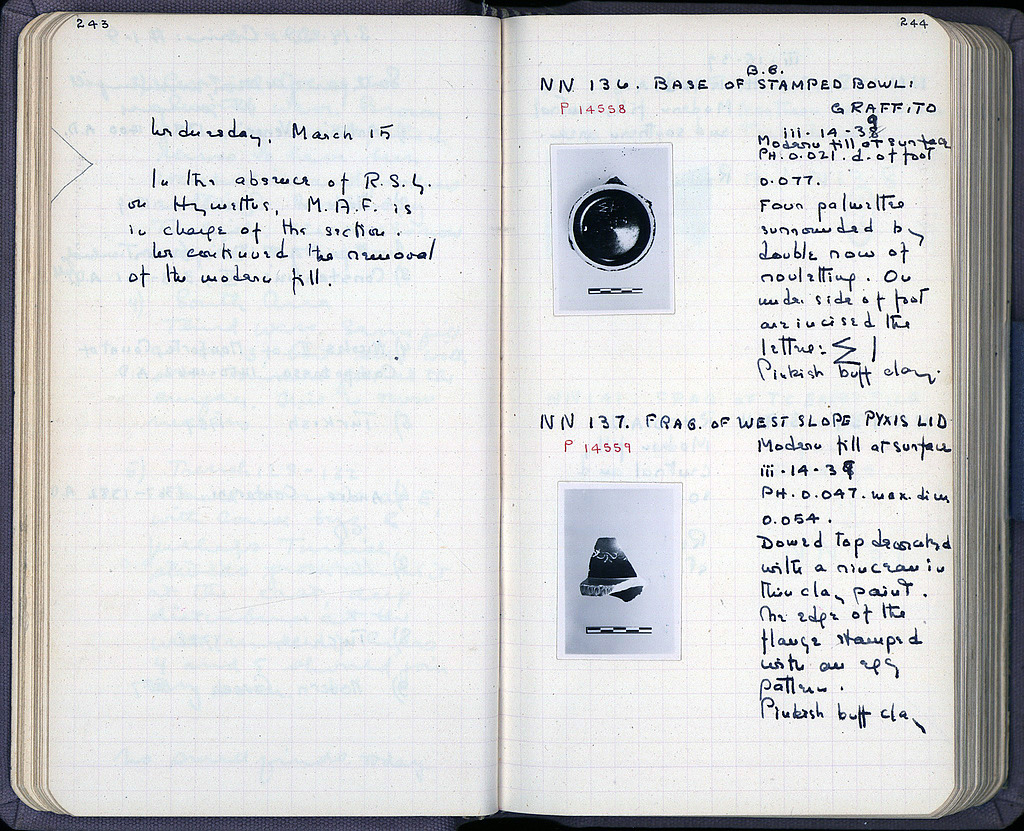 243
Wednesday, March 15
In the absence of R.S.Y.
on Hymettus, M.A.F. is
in charge of the section.
We continued the removal
of the modern fill.
244
B.G.
NN 136. BASE OF STAMPED BOWL:
GRAFFITO
P 14558
iii-14-39
Modern fill at surface
PH. 0.021. d. of foot
0.077.
Four palmettes
surrounded by
double row of
rouletting. On
under side of foot
are incised the
letters: Σ |
Pinkish buff clay.
NN 137. FRAG. OF WEST SLOPE PYXIS LID
P 14559
Modern fill at surface
iii-14-39
PH. 0.047. max. dim
0.054.
Domed top decorated
with a rinceau in
thin clay paint.
The edge of the
flange stamped
with an egg
pattern.
Pinkish buff clay